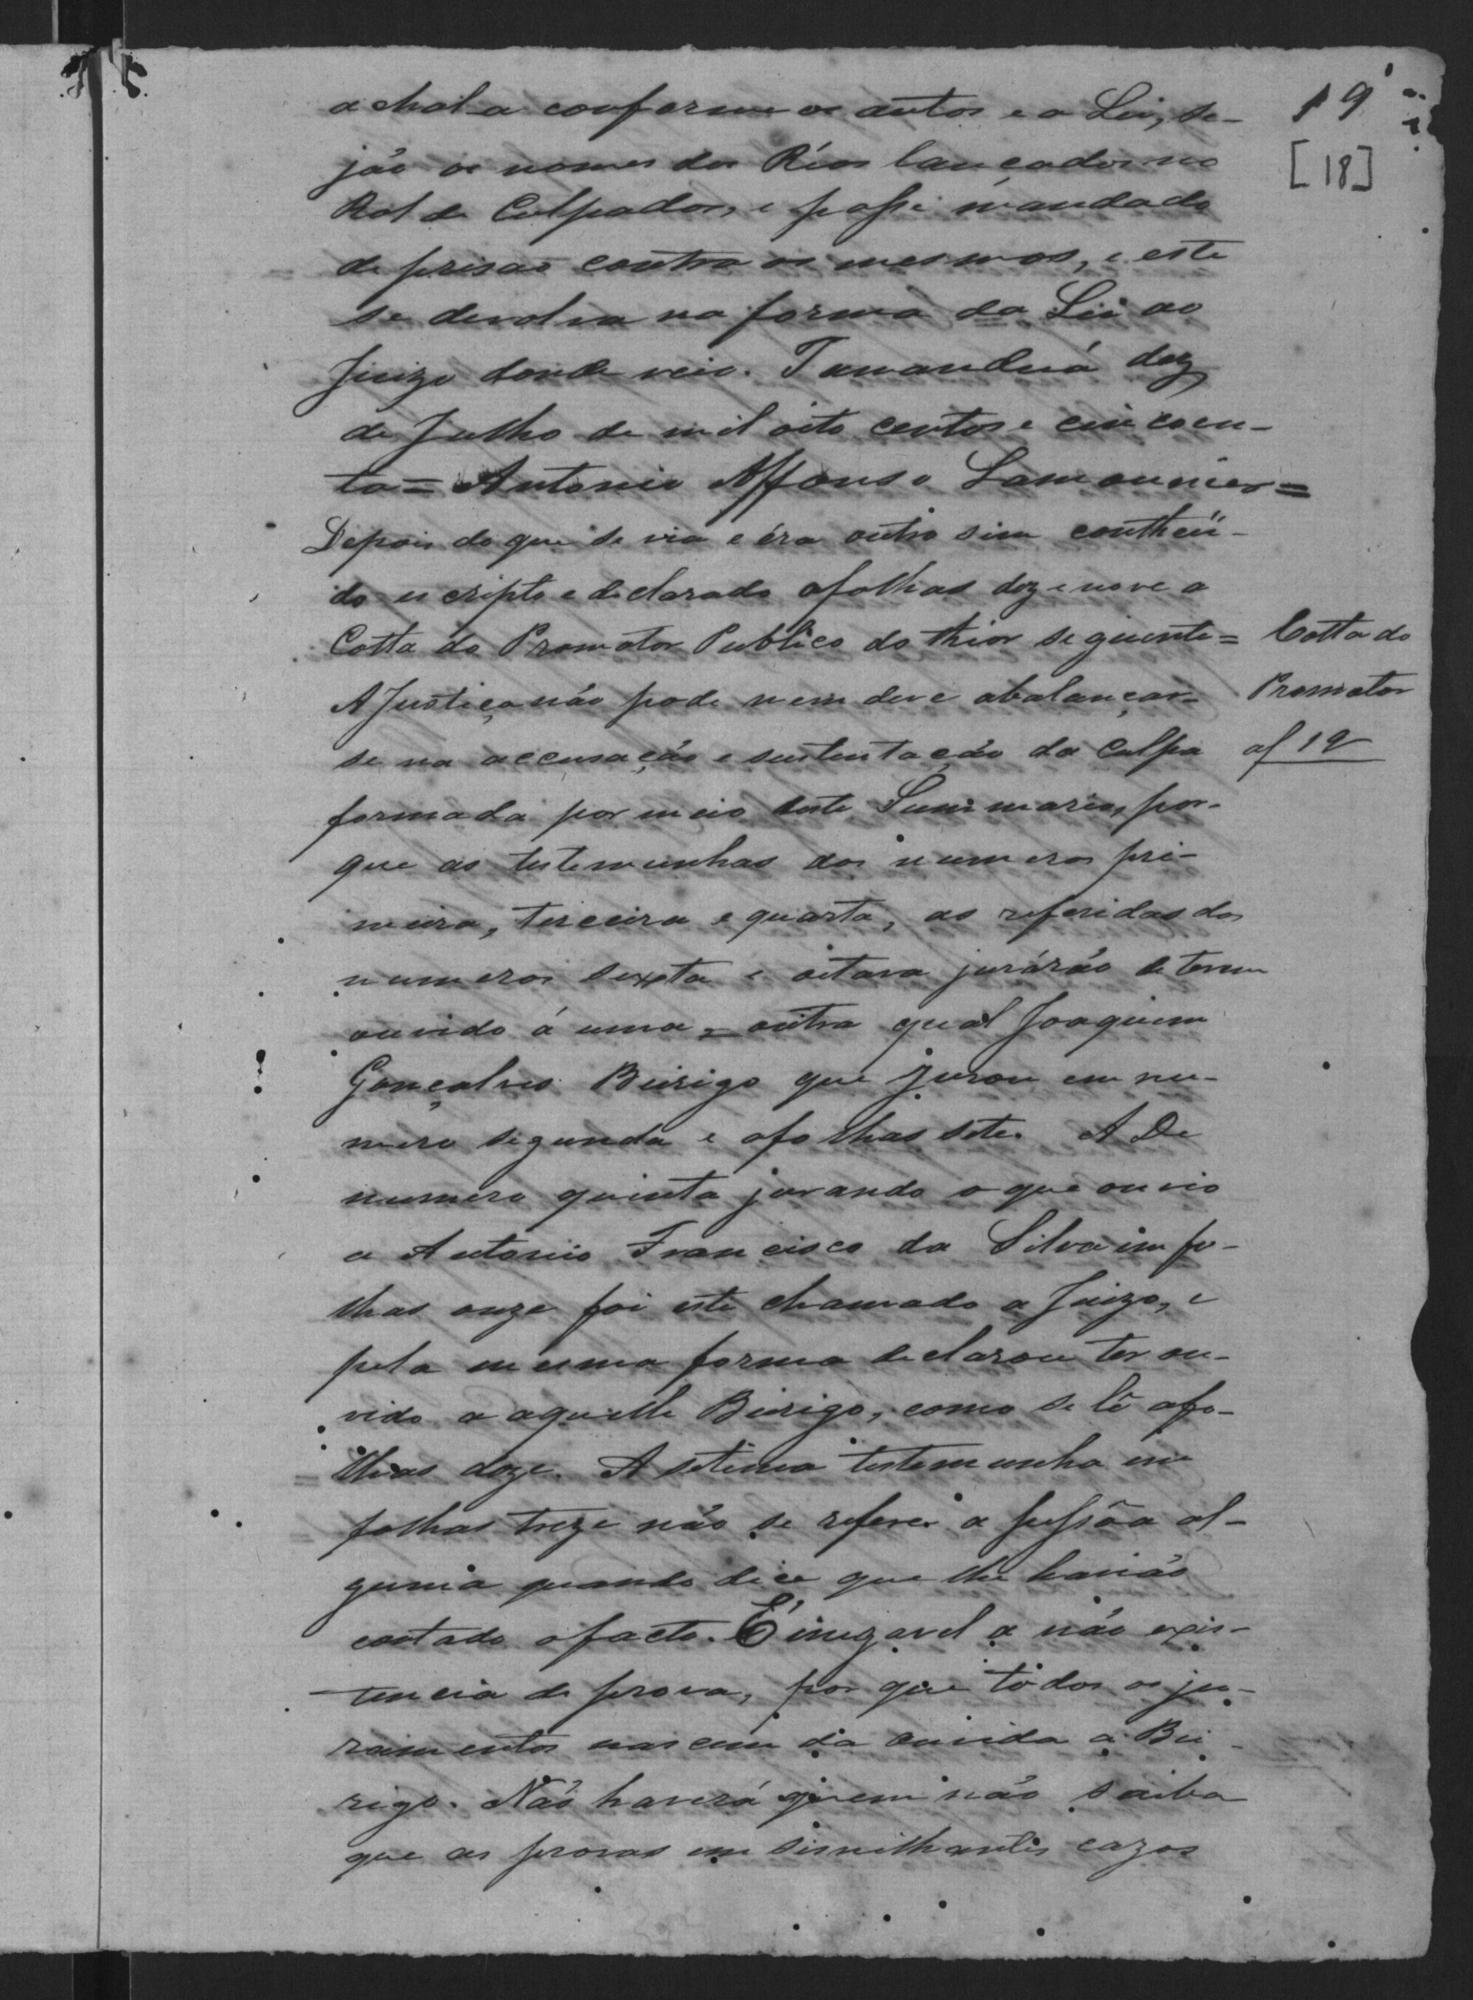 19
[18]
achal-a conforme os autos e a Lei, se-
jão os nomes dos Réos lançados no
Rol de Culpados, e passe mandado
de prisão contra os mesmos, e este
se devolva na forma da Lei ao
Juizo donde veio. Tamanduá dez
de Julho de mil oito centos e cincoen-
ta = Antonio Affonso Lamounier =
Depois do que se via e éra outro sim contheú-
do escripto e declarado afolhas dezenove a
Cotta do Promotor Publico do thior seguinte =
Cotta do
Promotor
af 19
A Justiça não pode nem deve abalançar-
se na accusação e sustentação da Culpa
formada por meio deste Summario, por-
que as testemunhas dos numeros pri-
meira, terceira e quarta, as referidas dos
numeros sexta e oitava jurárão de terem
ouvido á uma outra qual Joaquim
Gonçalves Burigo que jurou em nu-
mero segunda e afolhas sete. A De
numero quinta jurando o que ouvio
a Antonio Francisco da Silva im fo-
lhas onze foi este chamado a Juizo, e
pela mesma forma declarou ter ou-
vido a aquelle Burigo, como se lê afo-
lhas doze. A setima testemunha em
folhas treze não se refere a pessôa al-
guma quando dice que lhe havião
contado o facto. É inegavel a não exis-
tencia de prova, por que todos os ju-
ramentos nascem da ouvida a Bu-
rigo. Não haverá quem não saiba
que as provas em similhantes cazos